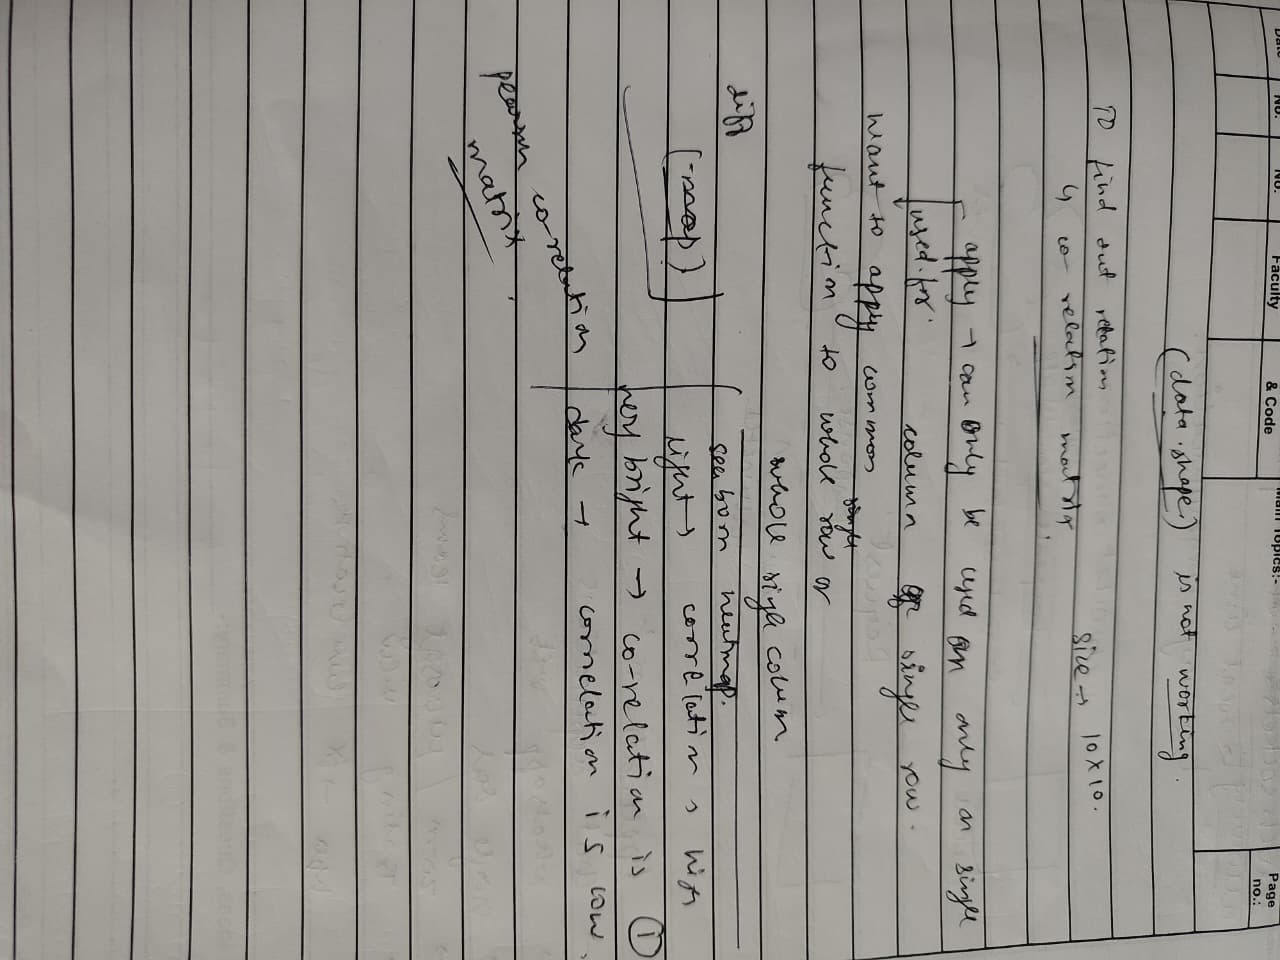 No.
No.
Faculty
& Code
Main Topics:-
Page
no.:
(data.shape) is not working.
To find out relation
size → 10x10.
↳ co-relation matrix.
apply → can only be used on only on single
used for. column or single row.
want to apply common
single
function to whole row or
whole single column
diff
seaborn heatmap.
(.map)
light → correlation is high
very bright → co-relation is 1
dark → correlation is low.
pearson co-relation
matrix